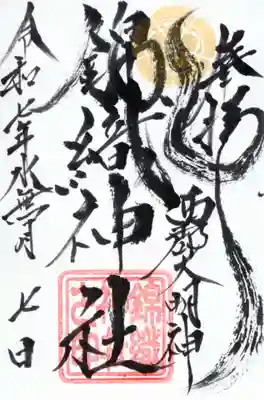 奉拝
西殿大明神
錦織神社
令和七年水無月
七日